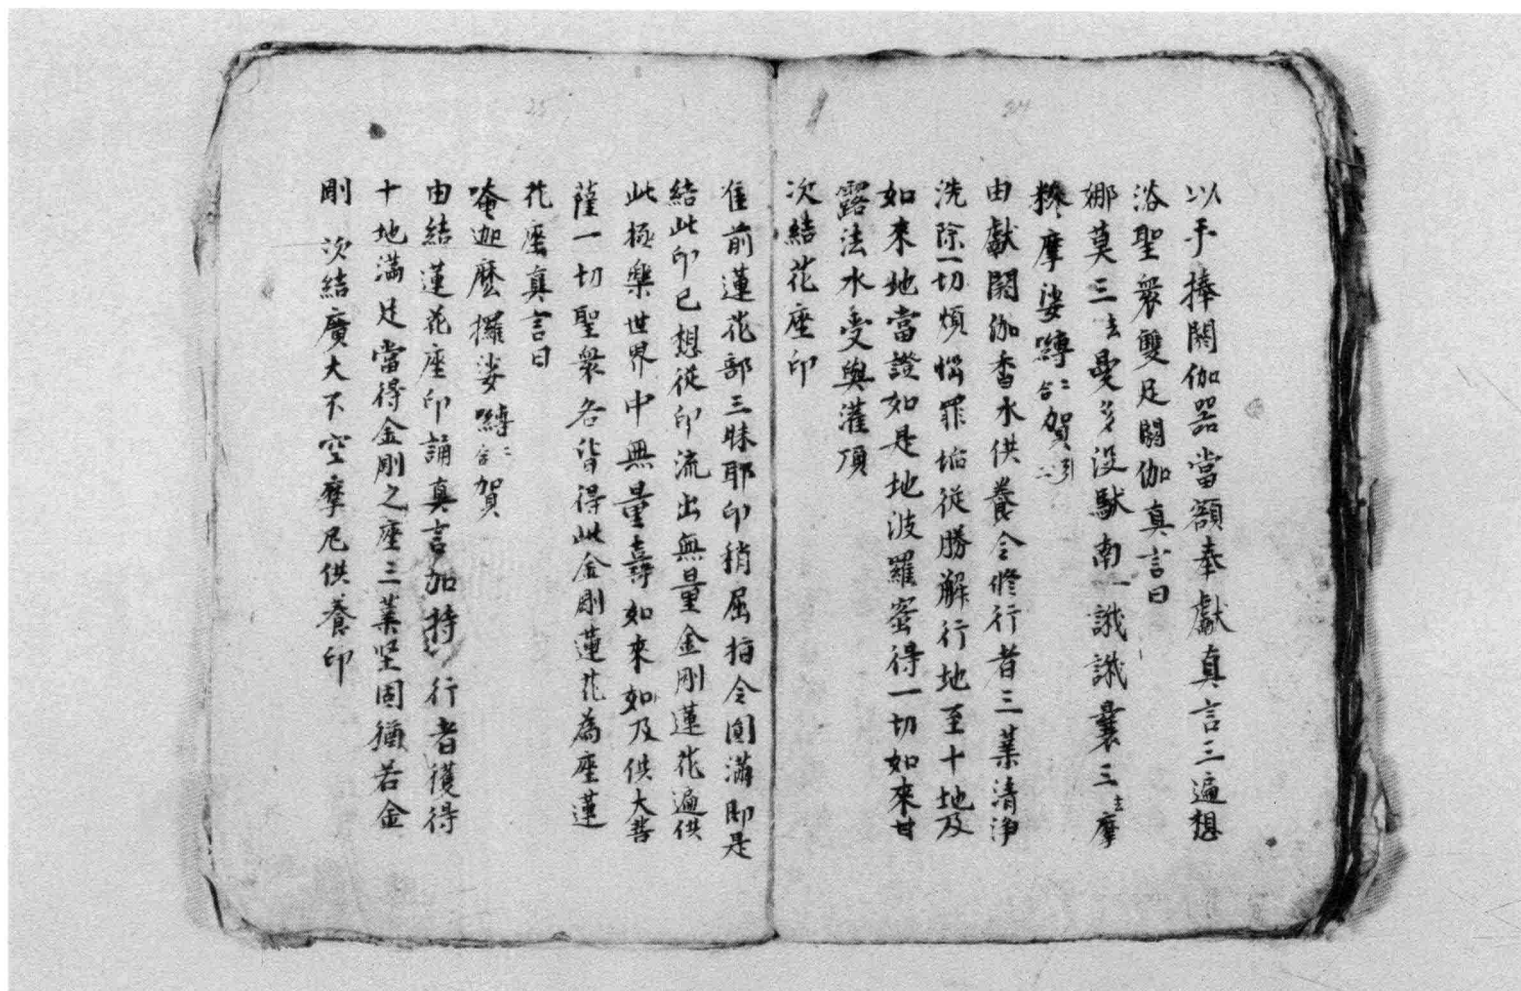 以手捧閼伽器當額奉獻真言三遍想
浴聖衆雙足閼伽真言曰
娜莫三去曼多没馱南一誐誐曩三去摩
摩娑嚩二合賀引二
由獻閼伽香水供養令修行者三業清浄
洗除一切煩惱罪垢従勝解行地至十地及
如來地當證如是地波羅蜜得一切如來甘
露法水受與灌頂
次結花座印
准前蓮花部三昧耶印稍屈指令圓滿即是
結此印已想従印流出無量金剛蓮花遍供
此極樂世界中無量壽如來如及供大菩
薩一切聖衆各皆得此金剛蓮花為座蓮
花座真言曰
唵迦麽攞娑嚩二合賀
由結蓮花座印誦真言加持行者獲得
十地滿足當得金剛之座三業坚固猶若金
剛 次結廣大不空摩尼供養印
24
25